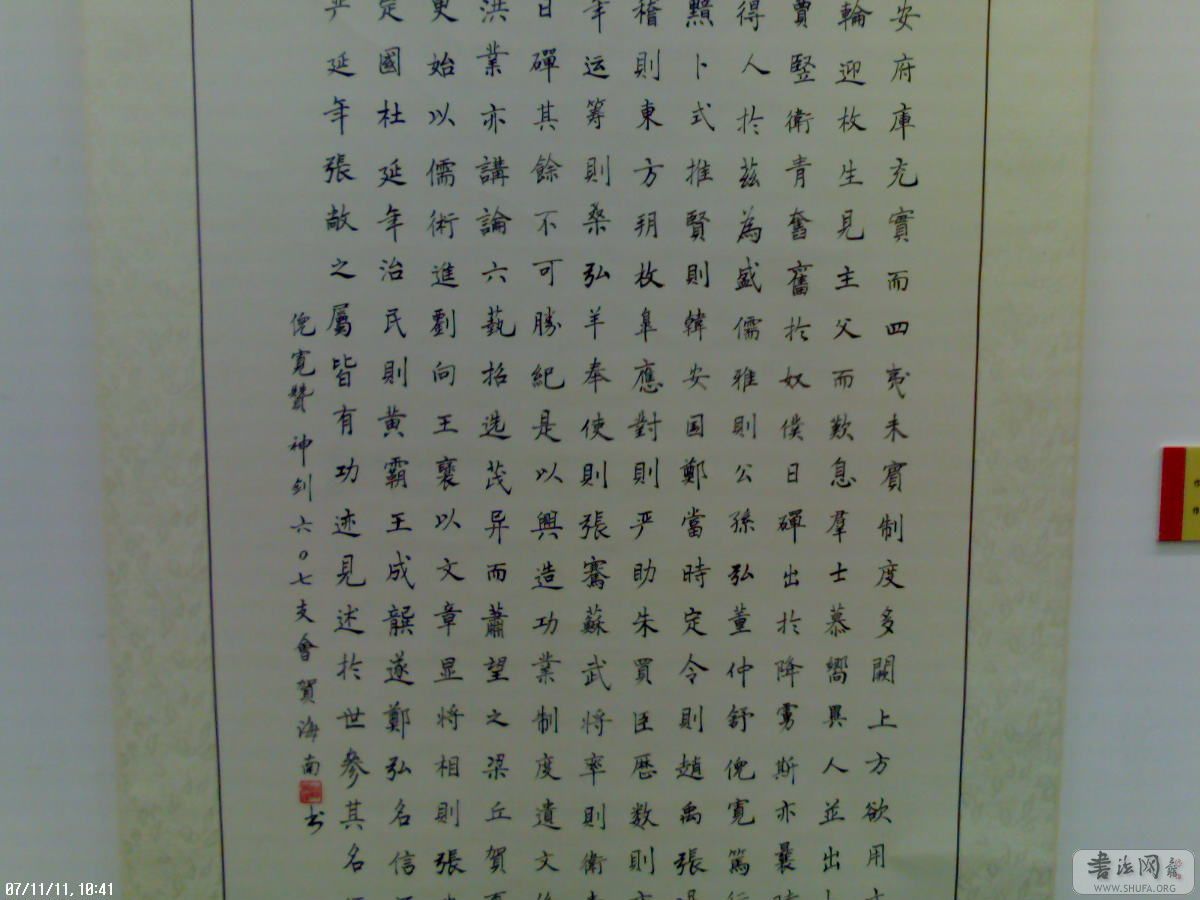 安府庫充實而四夷未賓制度多闕上方欲用
輪迎枚生見主父而歎息羣士慕嚮異人並出
賈豎衛青奮奮於奴僕日磾出於降虜斯亦曩時
得人於茲為盛儒雅則公孫弘董仲舒倪寬篤
黯卜式推賢則韓安国鄭當時定令則趙禹張
稽則東方玥枚皐應對則严助朱買臣歷数則
年运筹則桑弘羊奉使則張騫蘇武将率則衛
日磾其餘不可勝紀是以興造功業制度遺文
洪業亦講論六藝招选茂异而蕭望之梁丘賀
更始以儒術進劉向王褒以文章显将相則張
定國杜延年治民則黄霸王成龔遂鄭弘名信
严延年張敞之屬皆有功迹見述於世參其名
倪寬贊神剑六〇七支會賀海南书
07/11/11, 10:41
书法网
WWW.SHUFA.ORG